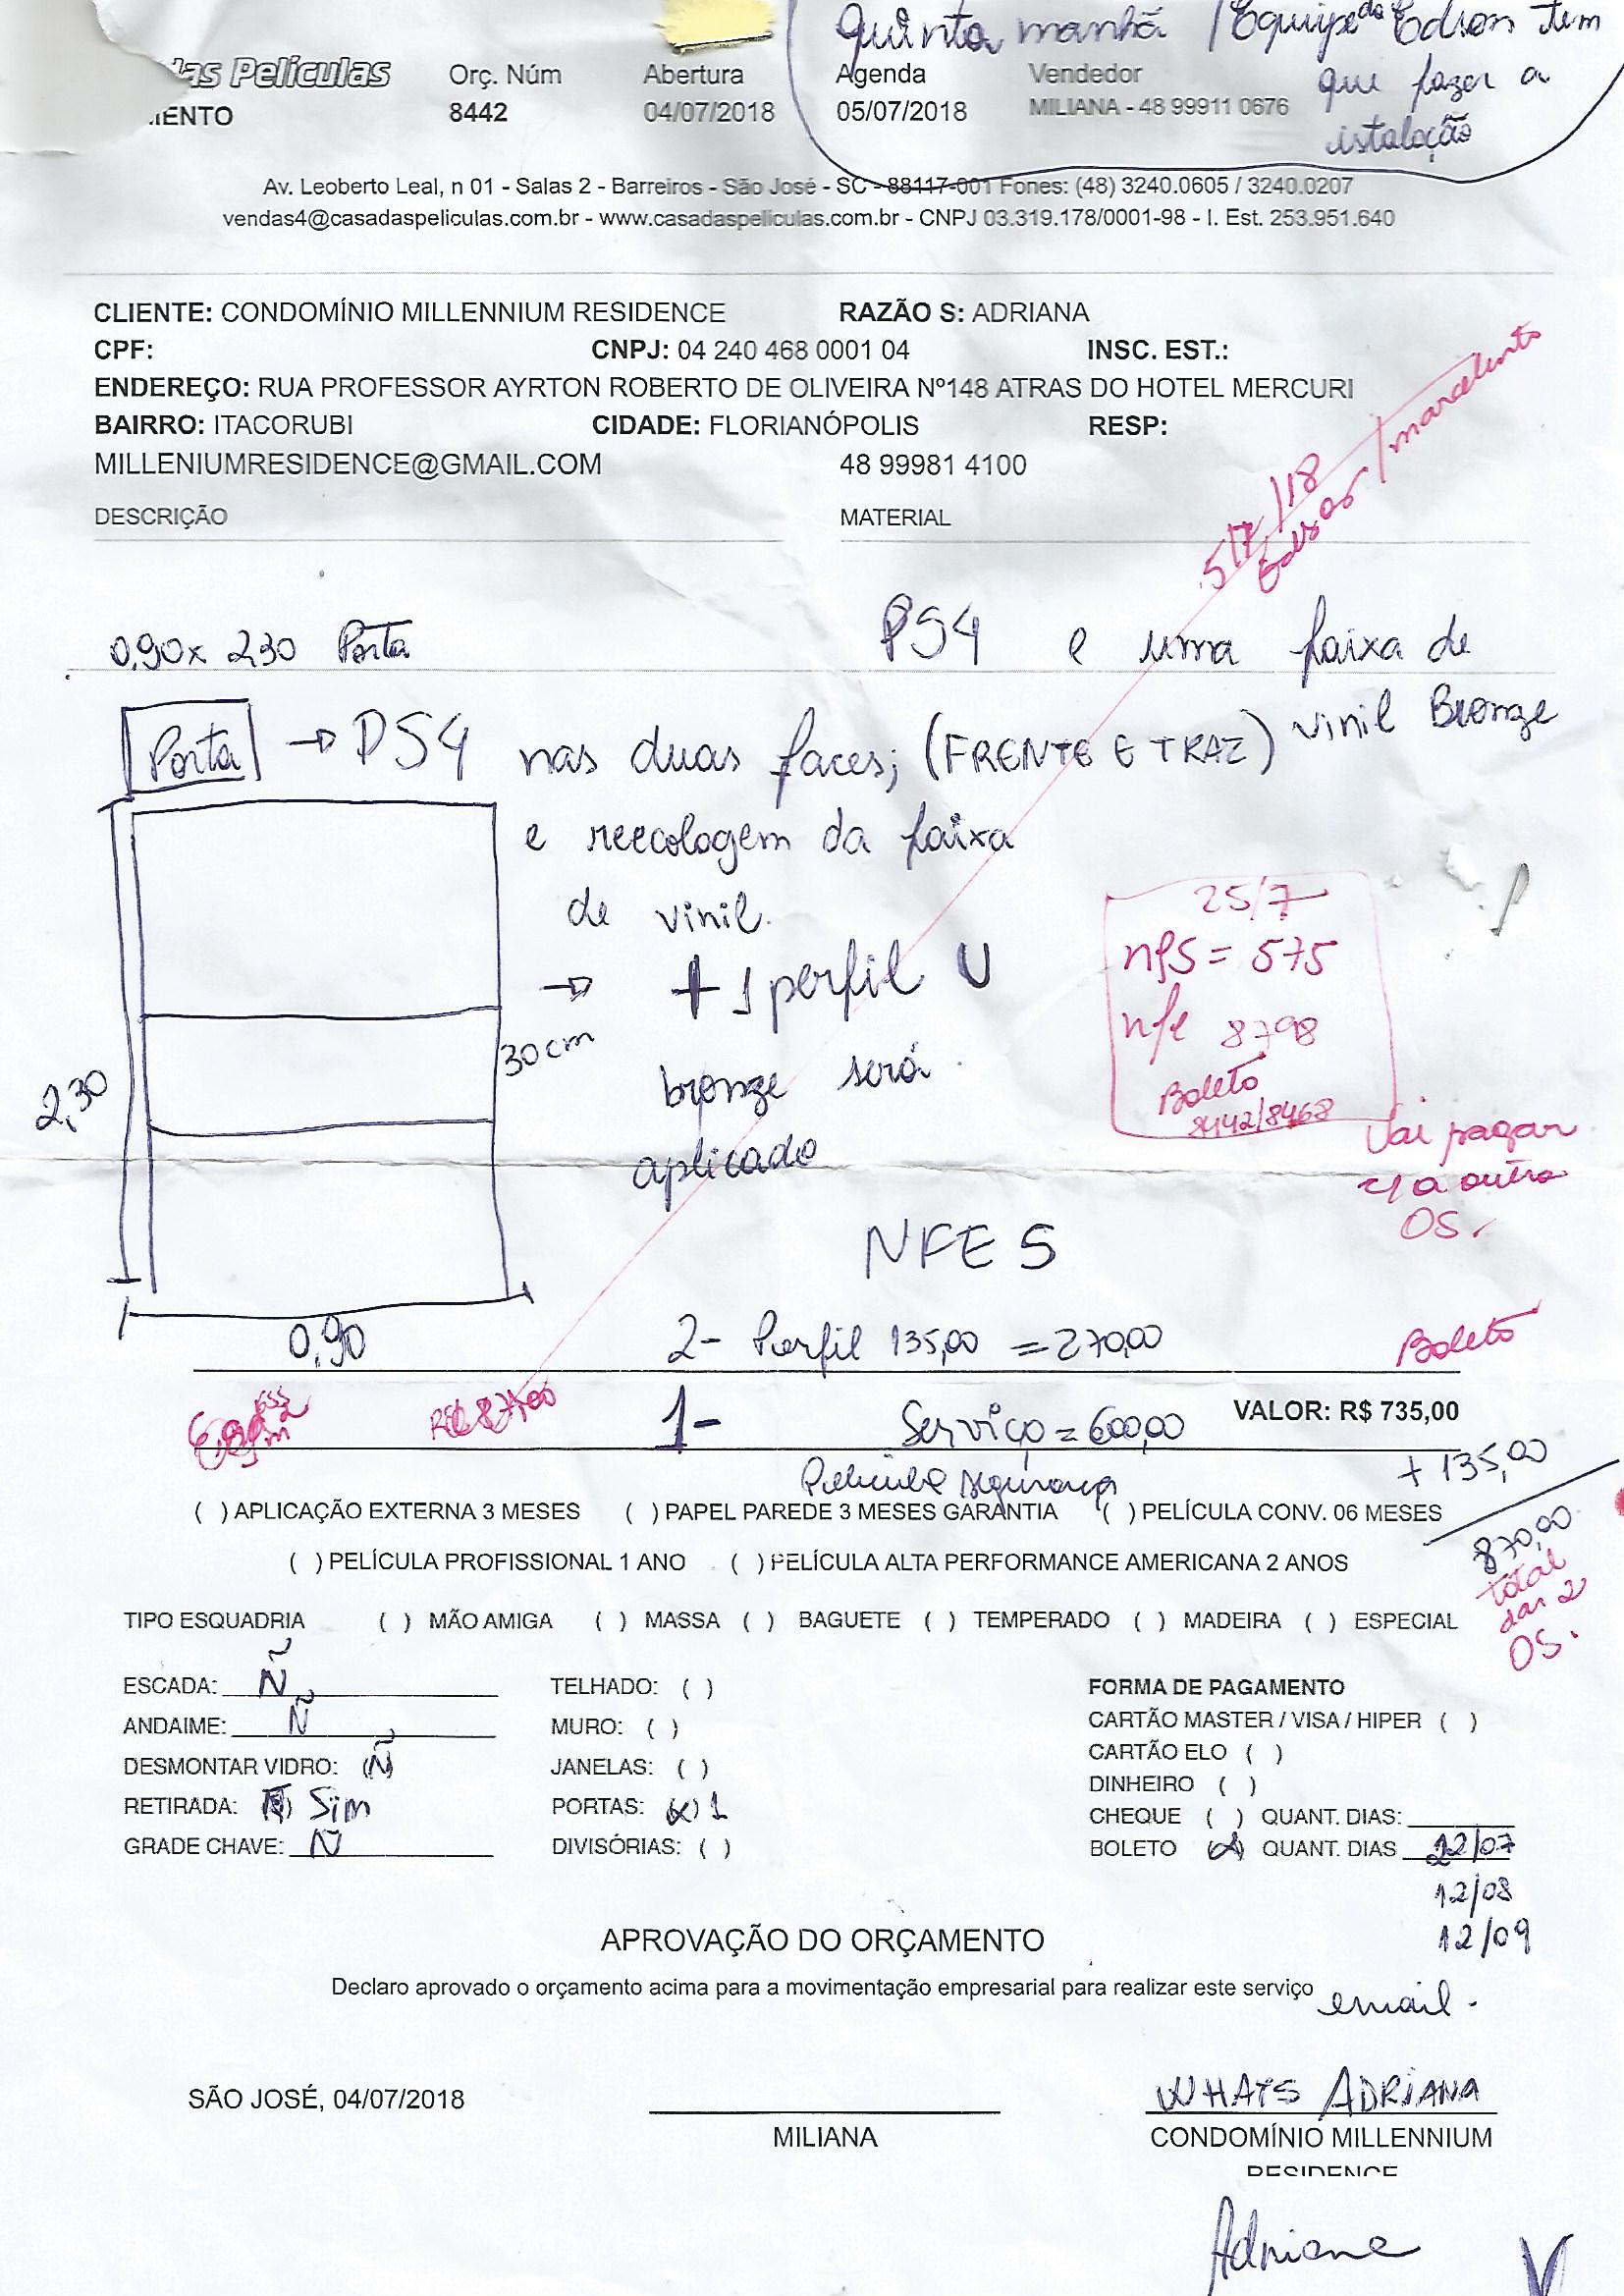 quinta manhã / Equipe do Edson tem
que fazer a
istalação
das Películas Orç. Núm Abertura Agenda Vendedor
MENTO 8442 04/07/2018 05/07/2018 MILIANA - 48 99911 0676
Av. Leoberto Leal, n 01 - Salas 2 - Barreiros - São José - SC - 88117-001 Fones: (48) 3240.0605 / 3240.0207
vendas4@casadaspeliculas.com.br - www.casadaspeliculas.com.br - CNPJ 03.319.178/0001-98 - I. Est. 253.951.640
CLIENTE: CONDOMÍNIO MILLENNIUM RESIDENCE RAZÃO S: ADRIANA
CPF: CNPJ: 04 240 468 0001 04 INSC. EST.:
ENDEREÇO: RUA PROFESSOR AYRTON ROBERTO DE OLIVEIRA Nº148 ATRAS DO HOTEL MERCURI
BAIRRO: ITACORUBI CIDADE: FLORIANÓPOLIS RESP:
MILLENIUMRESIDENCE@GMAIL.COM 48 99981 4100
DESCRIÇÃO MATERIAL
5/7/18
Edson / marcelinto
0,90x 2,30 Porta PS4 e uma faixa de
vinil Bronze
Porta → PS4 nas duas faces; (FRENTE E TRAZ)
e reecologem da faixa
de vinil.
→ + 1 perfil U
bronze será
aplicado
30cm
2,30
0,90
25/7
nfs = 575
nfe 8798
Boleto
8442/8468
Vai pagar
c/ a outra
OS.
NFE S
2- Perfil 135,00 = 270,00 Boleto
1- Serviço = 600,00 VALOR: R$ 735,00
Pelicula segurança + 135,00
870,00
total
das 2
OS.
( ) APLICAÇÃO EXTERNA 3 MESES ( ) PAPEL PAREDE 3 MESES GARANTIA ( ) PELÍCULA CONV. 06 MESES
( ) PELÍCULA PROFISSIONAL 1 ANO ( ) PELÍCULA ALTA PERFORMANCE AMERICANA 2 ANOS
TIPO ESQUADRIA ( ) MÃO AMIGA ( ) MASSA ( ) BAGUETE ( ) TEMPERADO ( ) MADEIRA ( ) ESPECIAL
ESCADA: Ñ TELHADO: ( ) FORMA DE PAGAMENTO
ANDAIME: Ñ MURO: ( ) CARTÃO MASTER / VISA / HIPER ( )
DESMONTAR VIDRO: (Ñ) JANELAS: ( ) CARTÃO ELO ( )
DINHEIRO ( )
RETIRADA: Sim PORTAS: (x) 1 CHEQUE ( ) QUANT. DIAS:
GRADE CHAVE: Ñ DIVISÓRIAS: ( ) BOLETO (x) QUANT. DIAS 22/07
12/08
12/09
APROVAÇÃO DO ORÇAMENTO
Declaro aprovado o orçamento acima para a movimentação empresarial para realizar este serviço
email.
SÃO JOSÉ, 04/07/2018 WHATS ADRIANA
MILIANA CONDOMÍNIO MILLENNIUM
RESIDENCE
Adriana